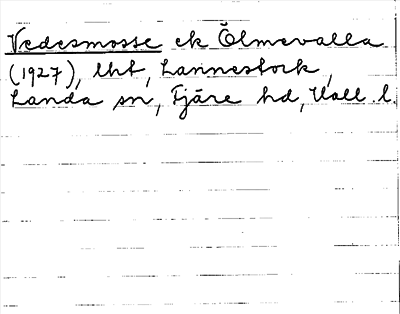 Vedesmosse ek Ölmevalla
(1927), lht, Lannestock,
Landa sn, Fjäre hd, Hall. l.